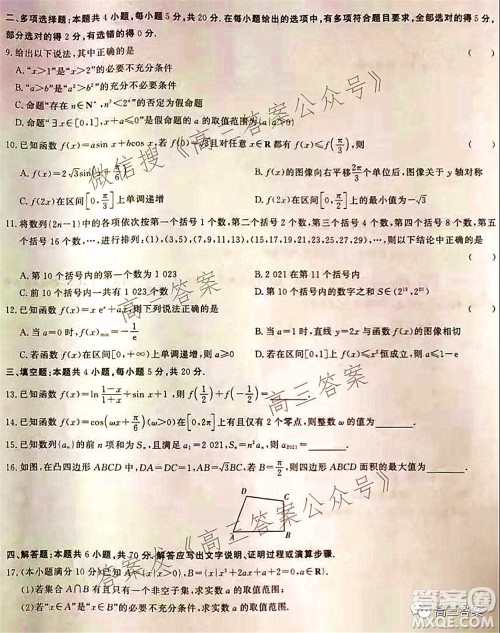 二、多项选择题:本题共4小题,每小题5分,共20分.在每小题给出的选项中,有多项符合题目要求,全部选对的得5分,
部分选对的得2分,有选错的得0分.
9.给出以下说法,其中正确的是 ( )
A.“x>1”是“x>2”的必要不充分条件
B.“a>b”是“a²>b²”的充要条件
C.命题“存在n∈N*,n²<2ⁿ”的否定为假命题
D.命题“∃x∈[0,1],x+a≤0”是假命题的a的取值范围为{a|a>0}
10.已知函数f(x)=asinx+bcosx,若f(0)=√3且对任意x∈R都有f(x)≤f(π/3),则 ( )
B.f(x)的图像向右平移2π/3个单位后,图像关于y轴对称
C.f(x)在区间[0,π/3]上单调递增
D.f(x)在区间[0,π/2]上的最小值为-√3
11.将数列{2n-1}中的各项依次按第一个括号1个数,第二个括号2个数,第三个括号4个数,第四个括号8个数,第五
个括号16个数,…,进行排列:(1),(3,5),(7,9,11,13),(15,17,…,27,29),…,则以下结论中正确的是 ( )
A.第10个括号内的第一个数为1 023
B.2 021在第11个括号内
C.前10个括号内一共有1 023个数
D.第10个括号内的数字之和S∈(2¹⁹,2²⁰)
12.已知函数f(x)=xeˣ+ax,则下列说法正确的是 ( )
A.当a=0时,f(x)min=-1/e
C.若函数f(x)在区间[0,+∞)上单调递增,则a≥-1
三、填空题:本题共4小题,每小题5分,共20分.
13.已知函数f(x)=ln(1-x)/(1+x)+sinx+1,则f(1/2)+f(-1/2)=
14.已知函数f(x)=cos(ωx+π/6)(ω>0)在[0,π]上有且仅有2个零点,则整数ω的值为
15.已知数列{aₙ}的前n项和为Sₙ,且满足a₁=2 021,Sₙ=n²aₙ,则a₂₀₂₁=
16.如图,在凸四边形ABCD中,DA=DC=1,AB=√3BC,B=π/2,则凸四边形ABCD面积的最大值为
D
C
A
B
四、解答题:本题共6小题,共70分.解答应写出文字说明、证明过程或演算步骤.
(1)若集合A与集合B的交集只有一个非空子集,求实数a的取值范围.
(2)若“x∈A”是“x∈B”的必要不充分条件,求实数a的取值范围.
微信搜《高三答案公众号》
高三答案
高三答案
答案搜《高三答案公众号》
高三答案